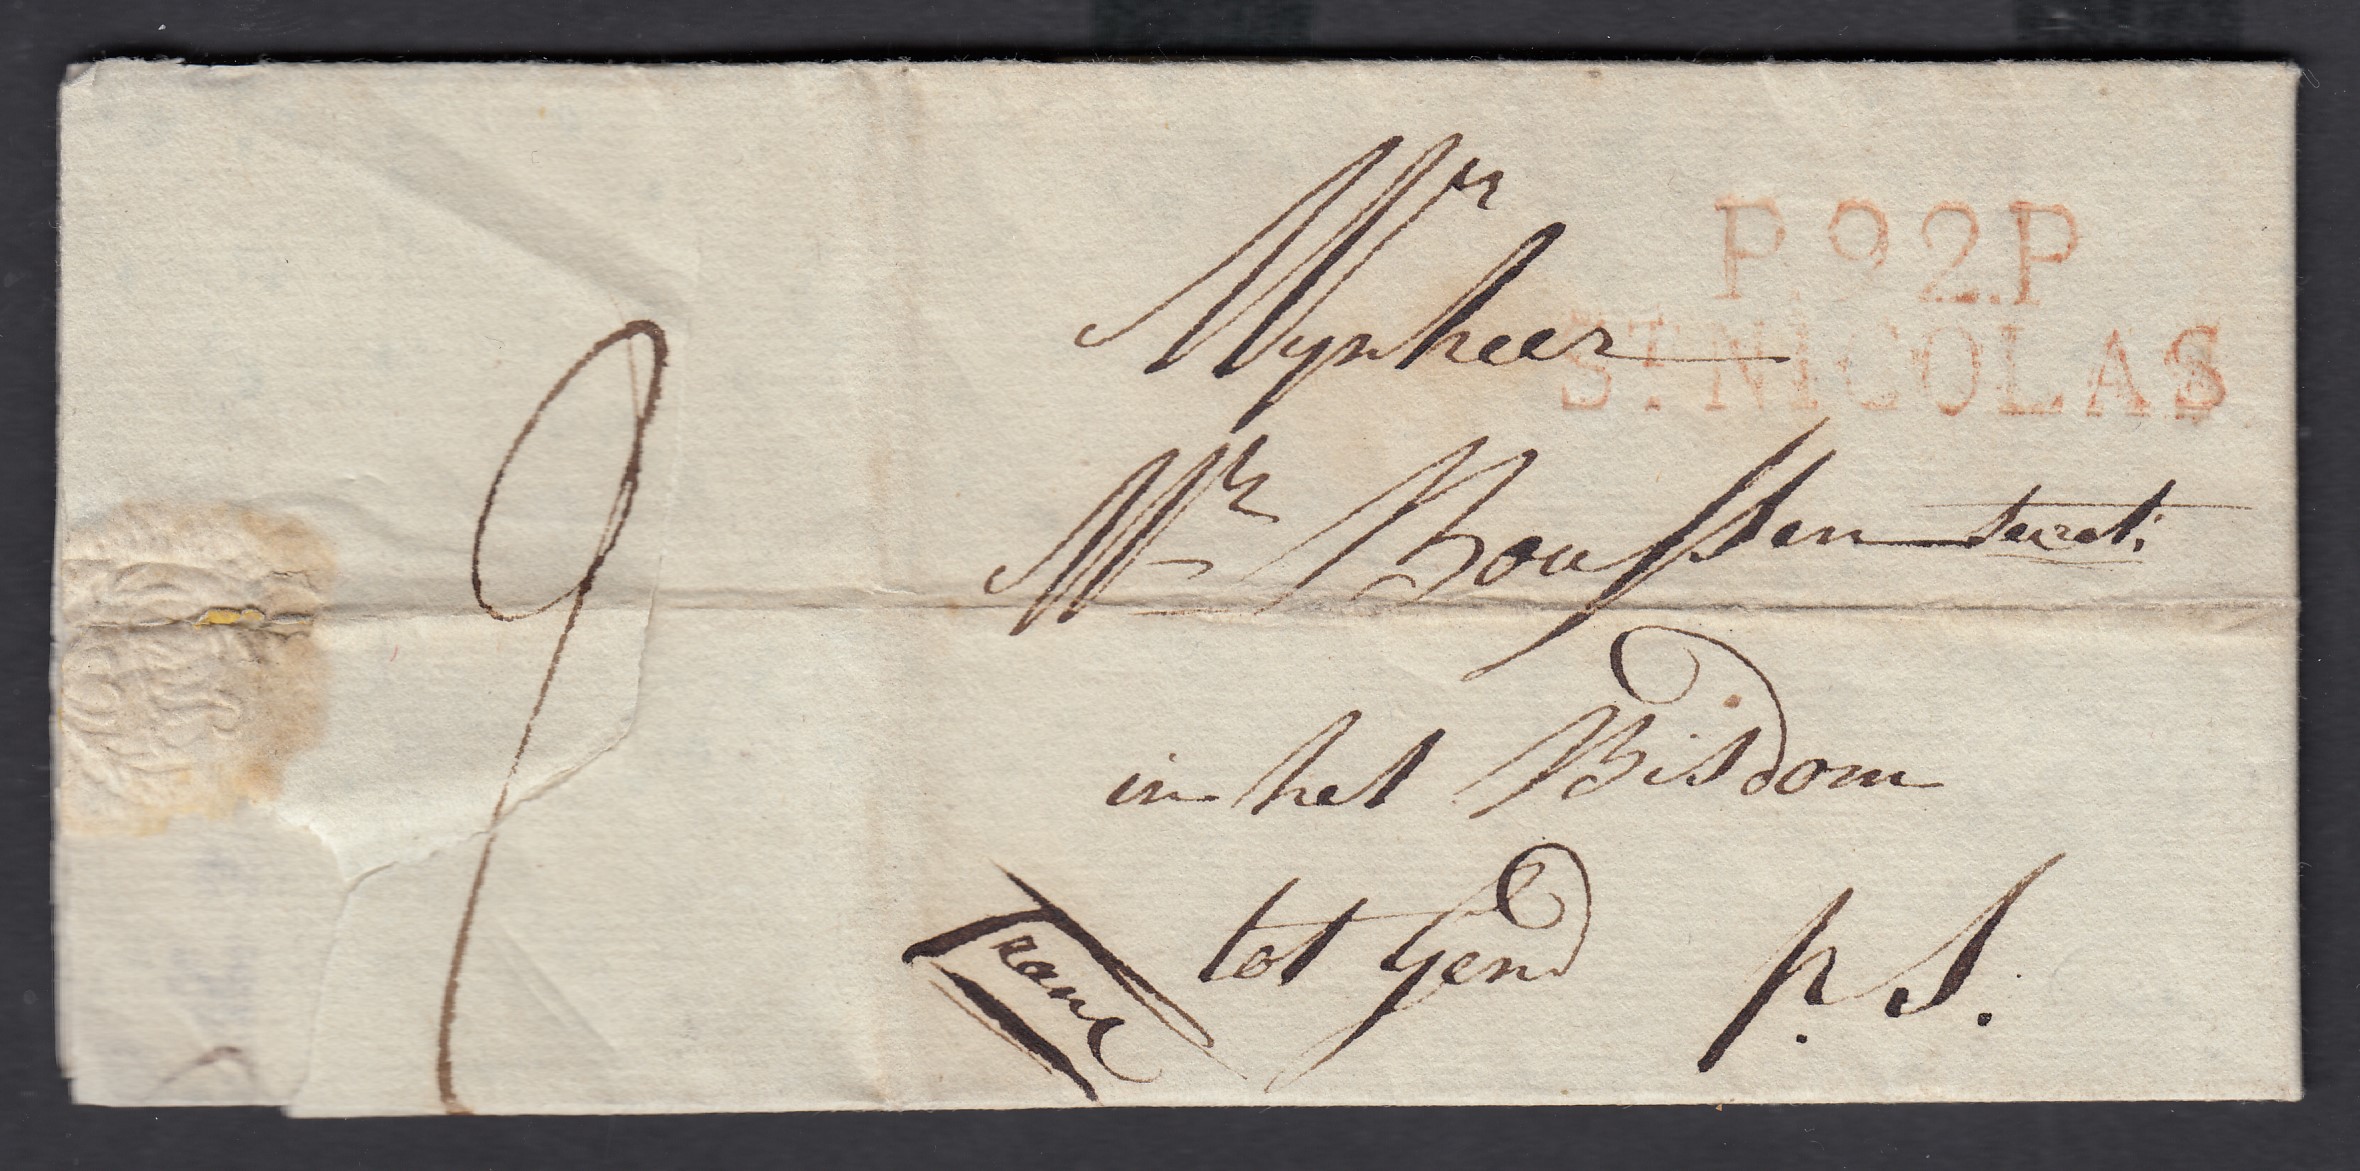 P.92.P
ST NICOLAS
Mr
Mynheer
Mr Boussen secret:
in het Bisdom
tot Gend p. S.
Franc